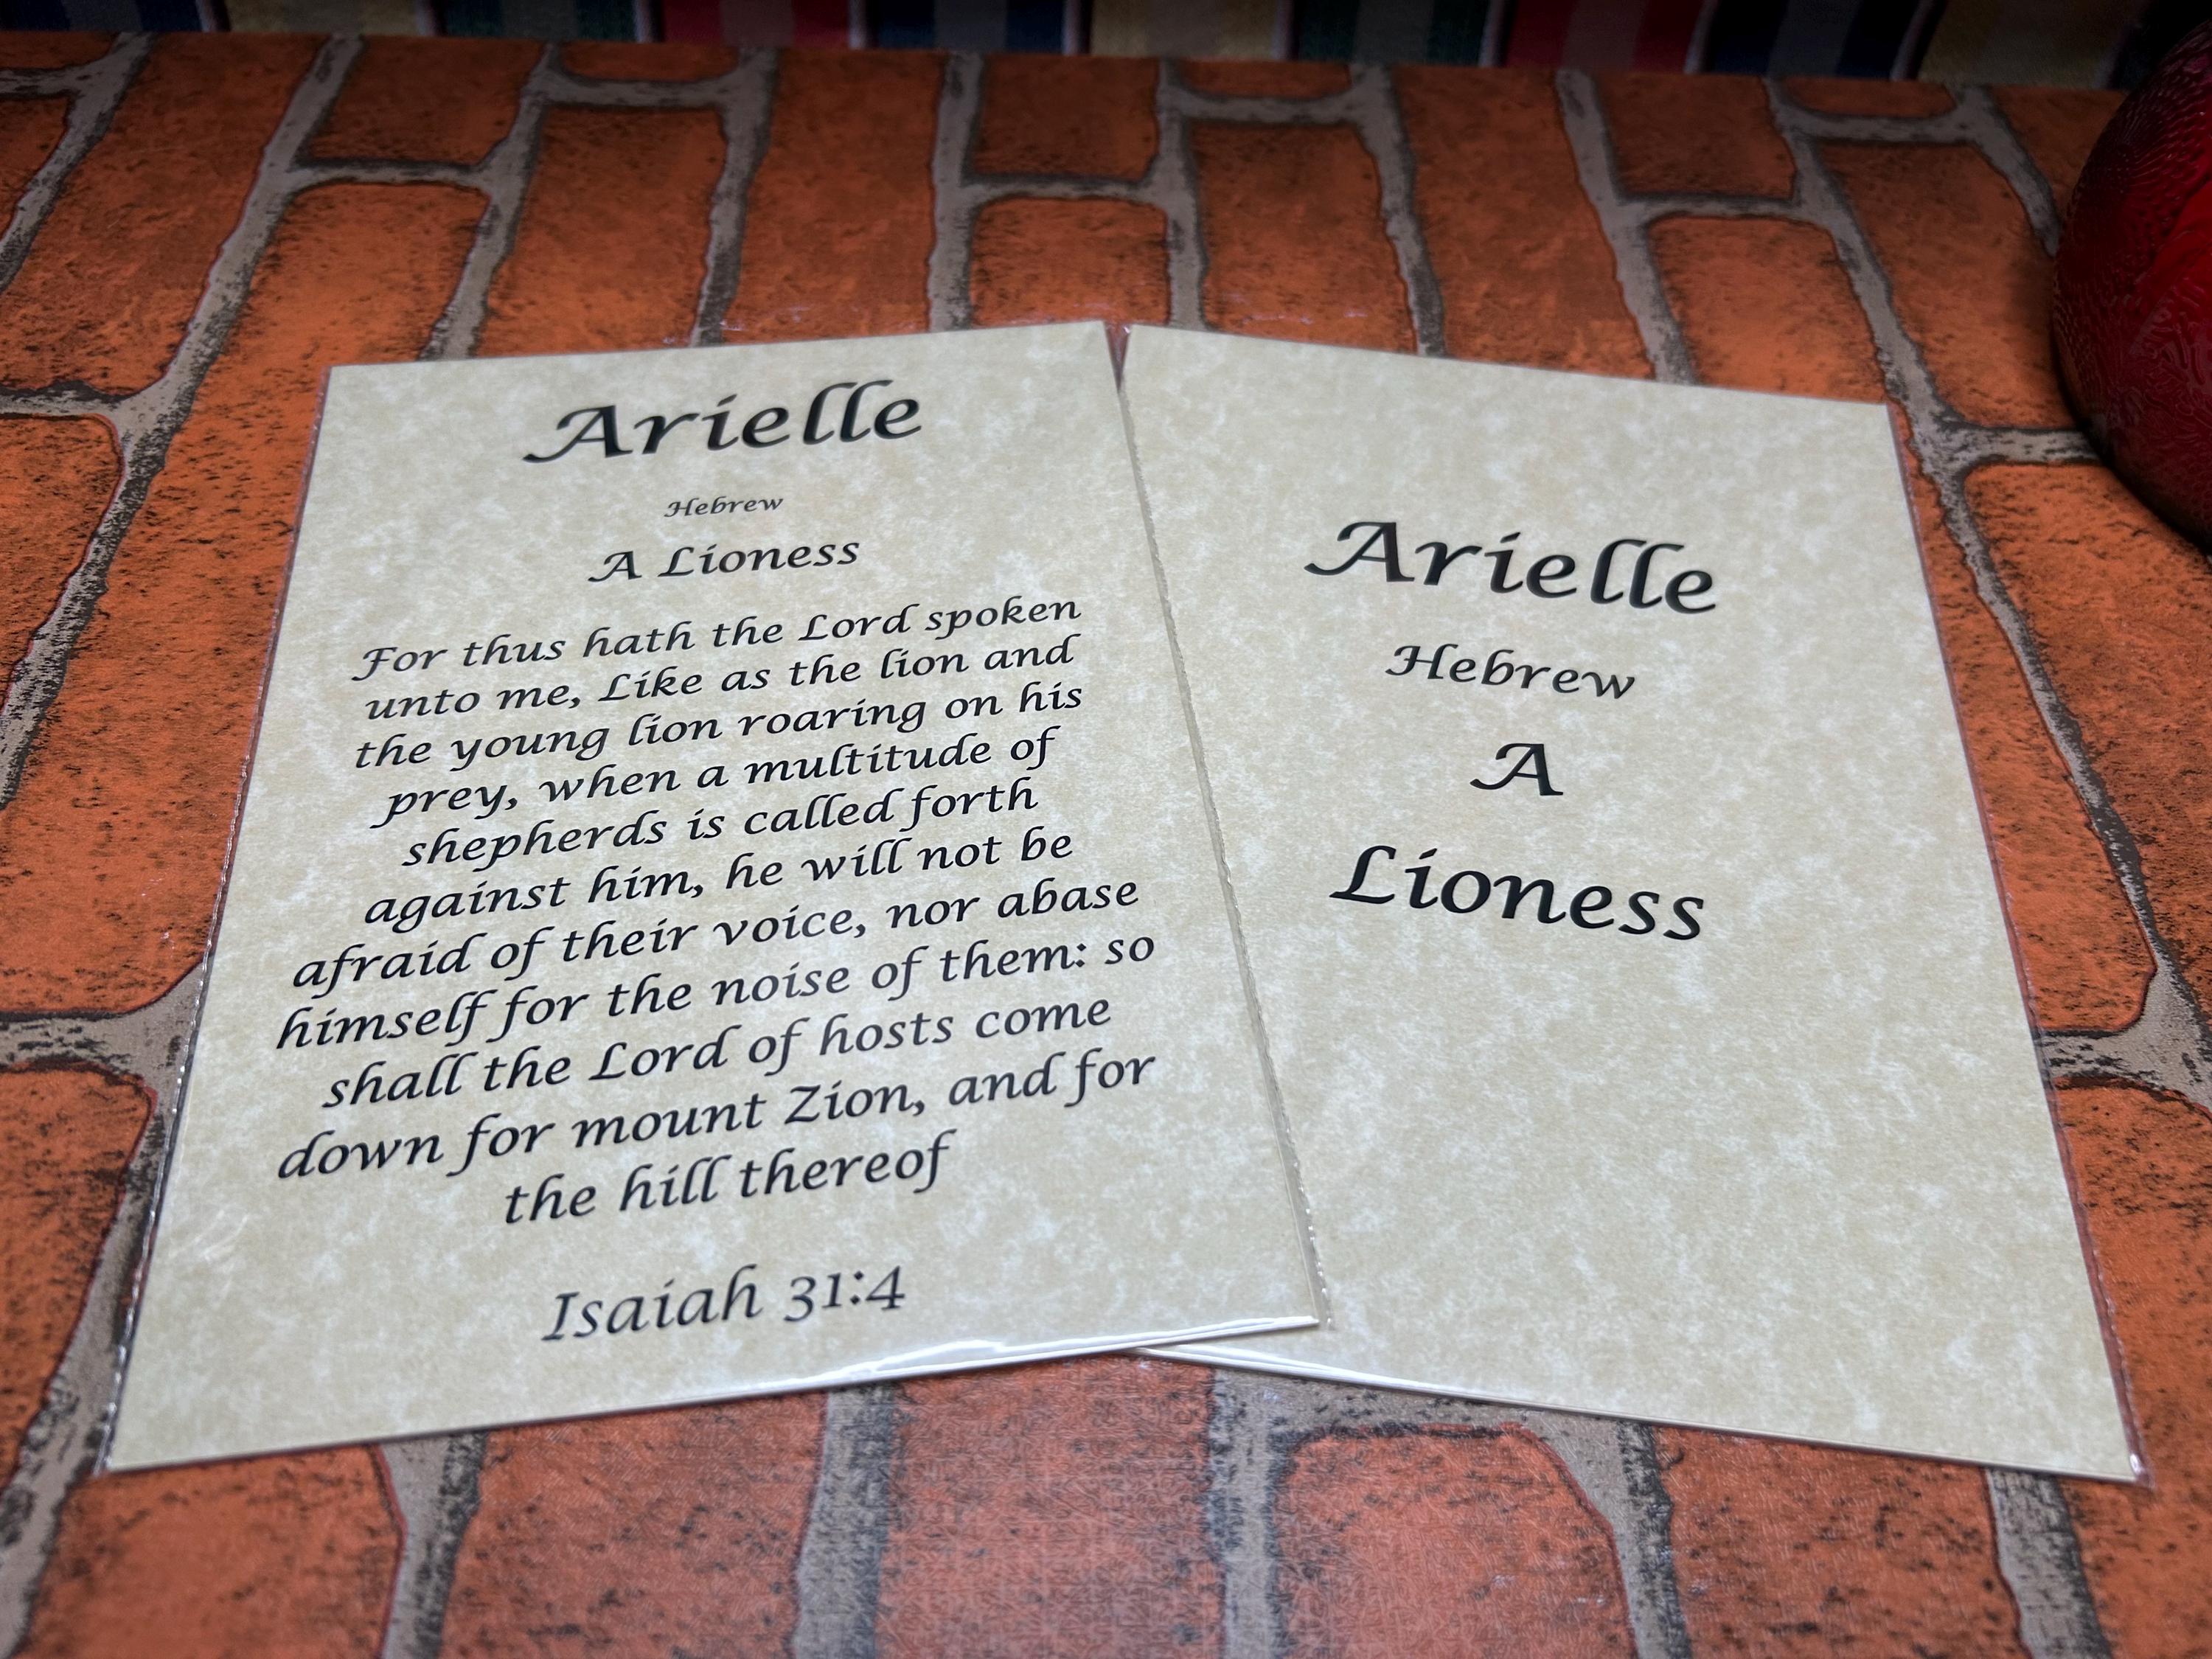 Arielle
Hebrew
A Lioness
For thus hath the Lord spoken
unto me, Like as the lion and
the young lion roaring on his
prey, when a multitude of
shepherds is called forth
against him, he will not be
afraid of their voice, nor abase
himself for the noise of them: so
shall the Lord of hosts come
down for mount Zion, and for
the hill thereof
Isaiah 31:4
Arielle
Hebrew
A
Lioness